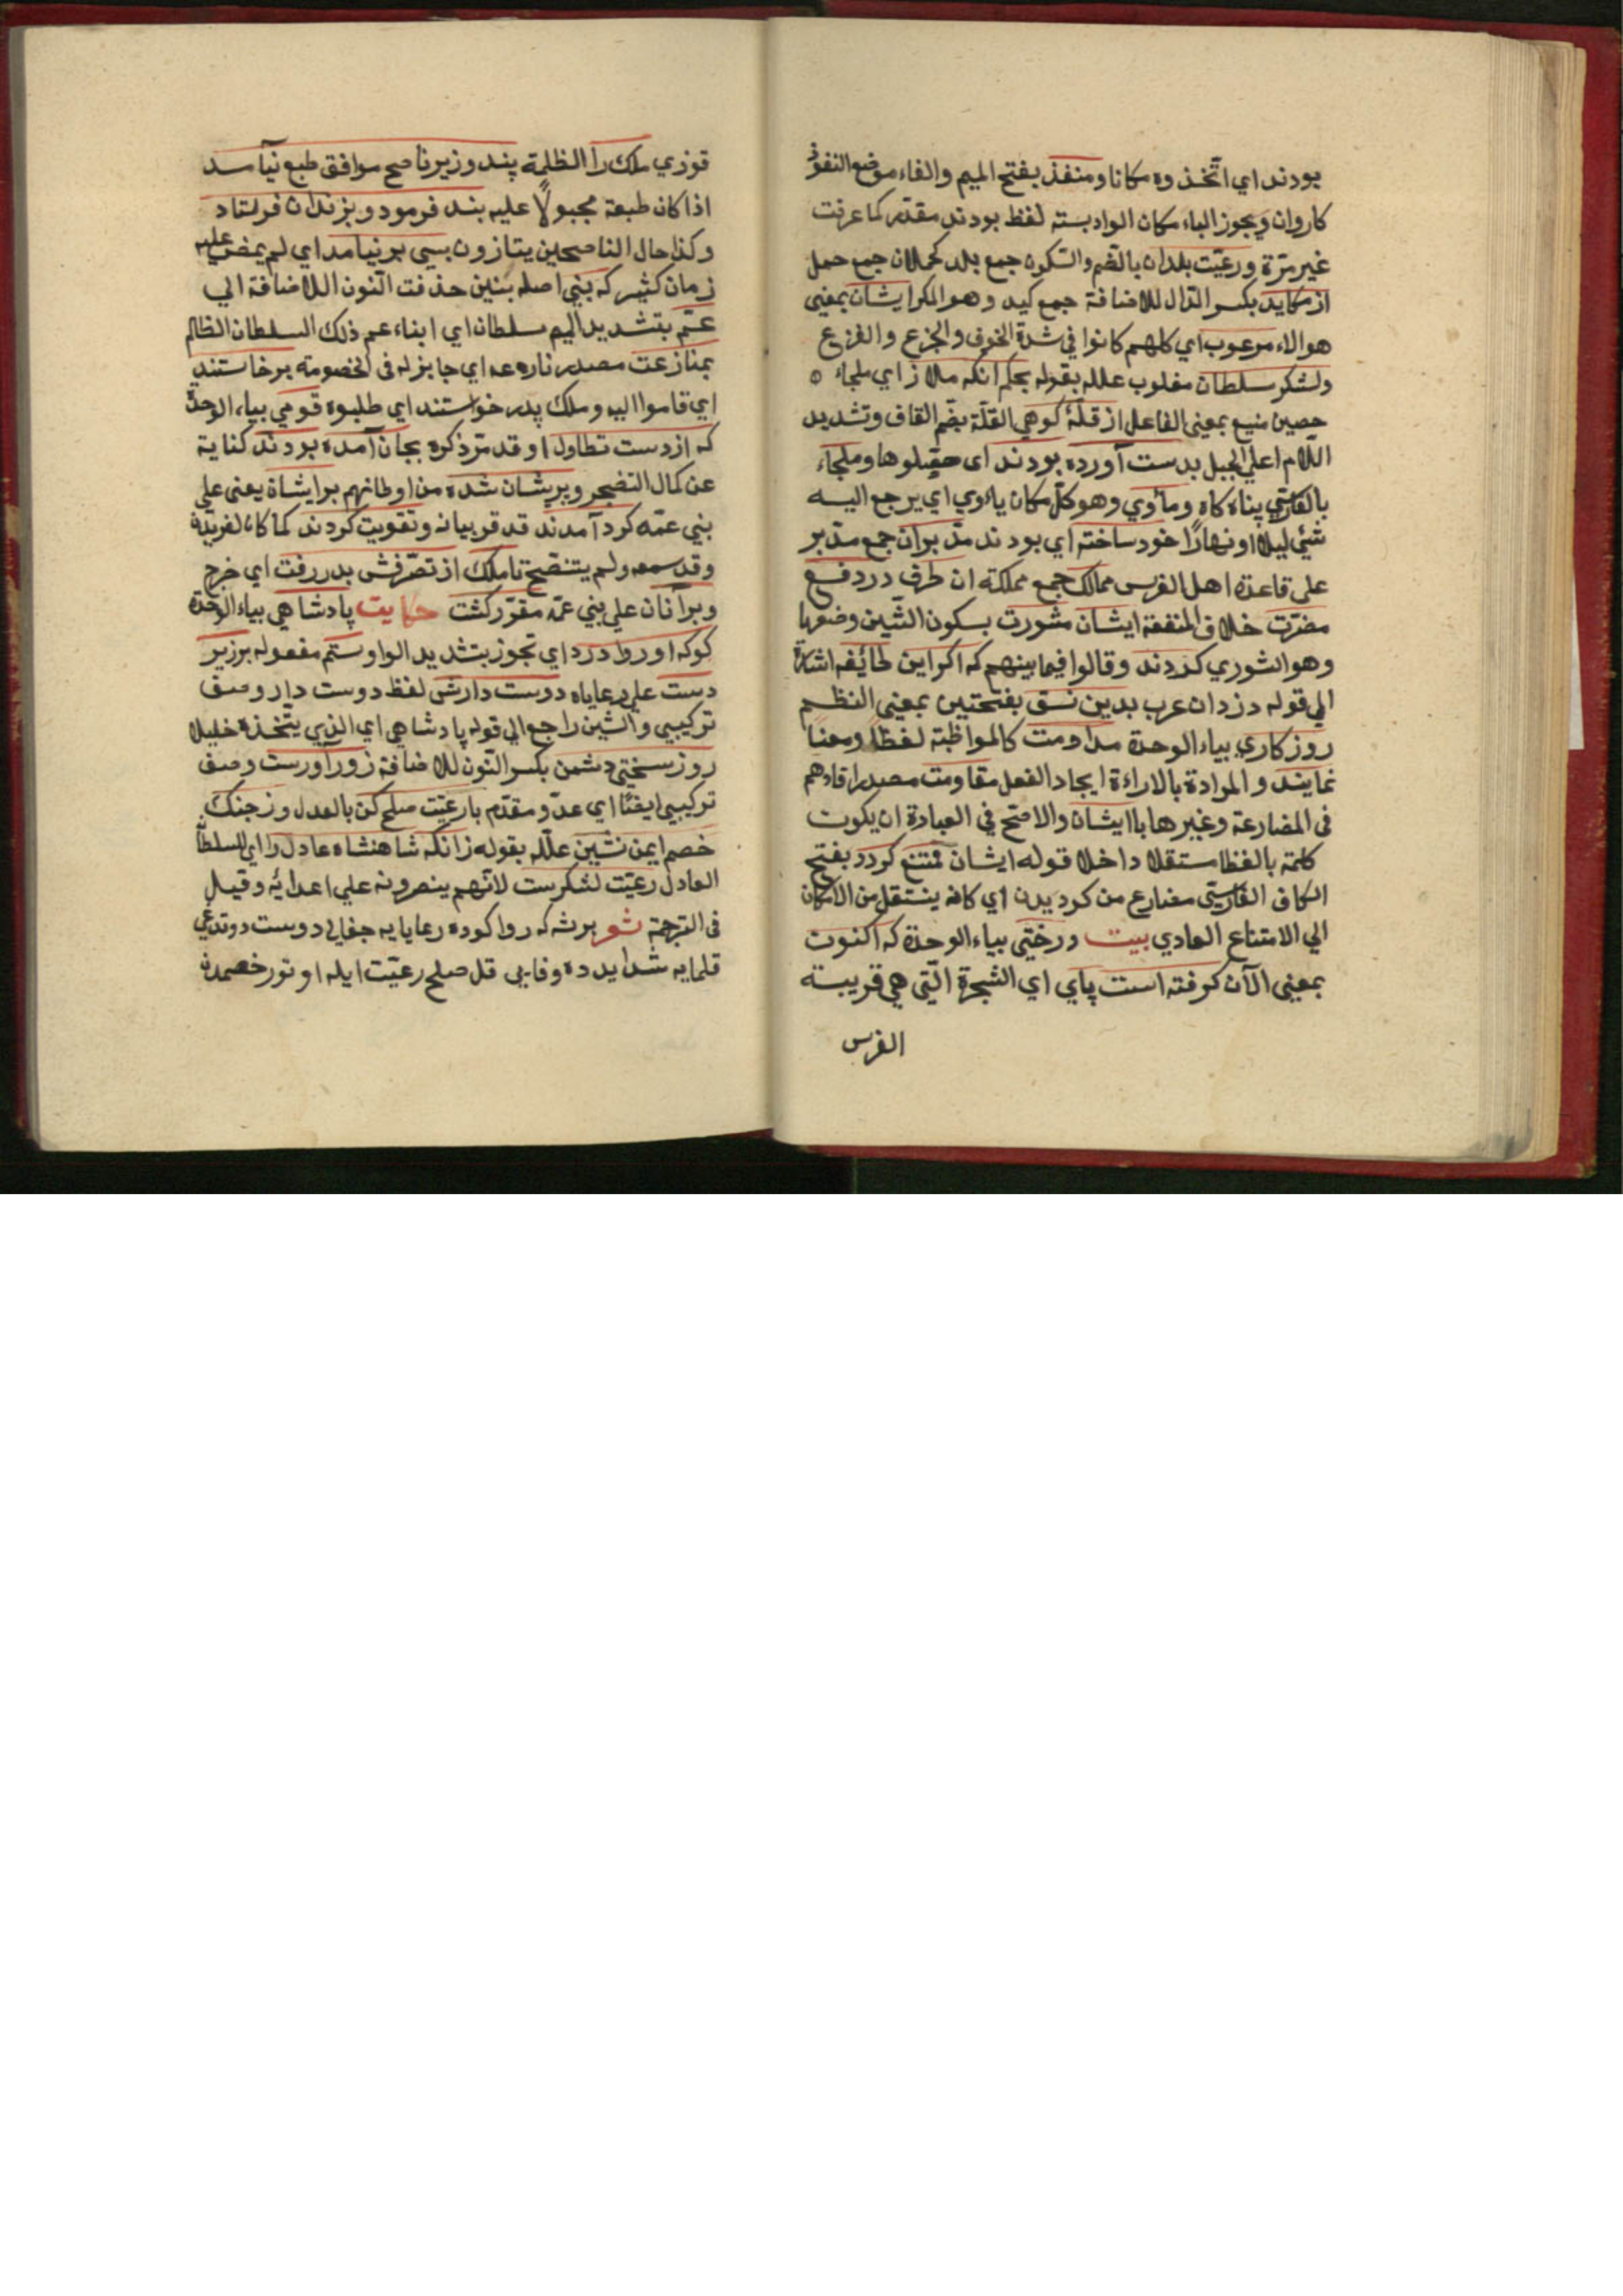 بودند اي اتّخذوه مكانا ومنفذ بفتح الميم والفاء موضع النفوذ
كاروان ويجوز الباء مكان الواو بسته لفظ بودند مقدّر كما عرفت
غير مرّة ورعيّت بلدان بالضّم والسّكون جمع بلد كحملان جمع حمل
از مكايد بكسر الدّال للاضافة جمع كيد وهو المكر ايشان بمعني
هؤلاء مرعوب اي كلهم كانوا في شدة الخوف والجزع والفزع
ولشكر سلطان مغلوب علله بقوله بحكم آنكه ملاز اي ملجاء
حصين منيع بمعني الفاعل از قلّهٔ كوهي القلّة بضّم القاف وتشديد
اللّام اعلي الجبل بدست آورده بودند اي حصّلوها وملجاء
بالفارسّي پناه كاه ومأوي وهو كلّ مكان يائوي اي يرجع اليه
شئي ليلا او نهارًا خود ساخته اي بودند مدّبران جمع مدّبر
علي قاعدة اهل الفرس ممالك جمع مملكته ان طرف در دفع
مضرّت خلاف المنفعة ايشان مشورت بسكون الشّين وضمها
وهو الشوري كردند وقالوا فيما بينهم كه اكر اين طائفه اشارة
الي قوله دزدان عرب بدين نسق بفتحتين بمعني النظم
روزكاري بياء الوحدة مداومت كالمواظبة لفظاً ومعناً
نمايند والمرادة بالاراءة ايجاد الفعل مقاومت مصدر اقادهم
في المضارعة وغيرها با ايشان والاصّح في العبادة ان يكوت
كلمة با لفظا مستقلا داخلا قوله ايشان ممتنع كردد بفتح
الكاف الفارسّي مضارع من كرديدن اي كانه ينتقل من الامكان
الي الامتناع العادي بيت درختي بياء الوحدة كه اكنوت
بمعني الآن كرفته است پاي اي الشجرة الّتي هي قريبة
الغرس
قوزي ملك را الظلمة پند وزير ناصح موافق طبع نيآمد
اذا كان طبعة مجبولاً عليه بند فرمود وبزندان فرستاد
وكذا حال الناصحين بسي بر نيامد اي لم يمض عليه
زمان كثير كه بني اصله بنين حذفت النون للاضافة الي
عمّ بتشديد الميم سلطان اي ابناء عم ذلك السلطان الظالم
بمنازعت مصدر نازعه اي جابزله في الخصومة برخاستند
اي قاموا اليه وملك پدر خواستند اي طلبوه قومي بياء الوحدة
كه از دست تطاول او قد مرّ ذكره بجان آمده بودند كناية
عن كمال التضجر وپريشان شده من اوطانهم بر ايشان يعني علي
بني عمّه كرد آمدند قد قر بيانه وتقويت كردند كما كان لفريدون
وقد سمعه ولم يتنصّح تا ملك از تصّرفش بدر رفت اي خرج
وبر آنان علي بني عمّه مقرّر كشت حكايت پادشاهي بياء الوحدة
كوكه او روا دارد اي تجوز بتشديد الواو ستم مفعوله بر زير
دست علي رعاياه دوست دارش لفظ دوست دار وصف
تركيبي والشين راجع الي قوله پادشاهي اي الذي يتّخذه خليلا
روز سختي دشمن بكسر النّون للاضافة زور آورست وصف
تركيبي ايضًا اي عدّو مقدّم با رعيّت صلح كن بالعدل وز جنك
خصم ايمن نشين علّله بقوله زانكه شاهنشاه عادل را اي السلطان
العادل رعيّت لشكرست لانّهم ينصرونه علي اعدائه وقيل
في الترجمة شعر برشه كه روا كوده رعايايه جفايي دوست دوتدغي
قلمايه شدايد ده وفايي قل صلح رعيّت ايله او تور خصمدن